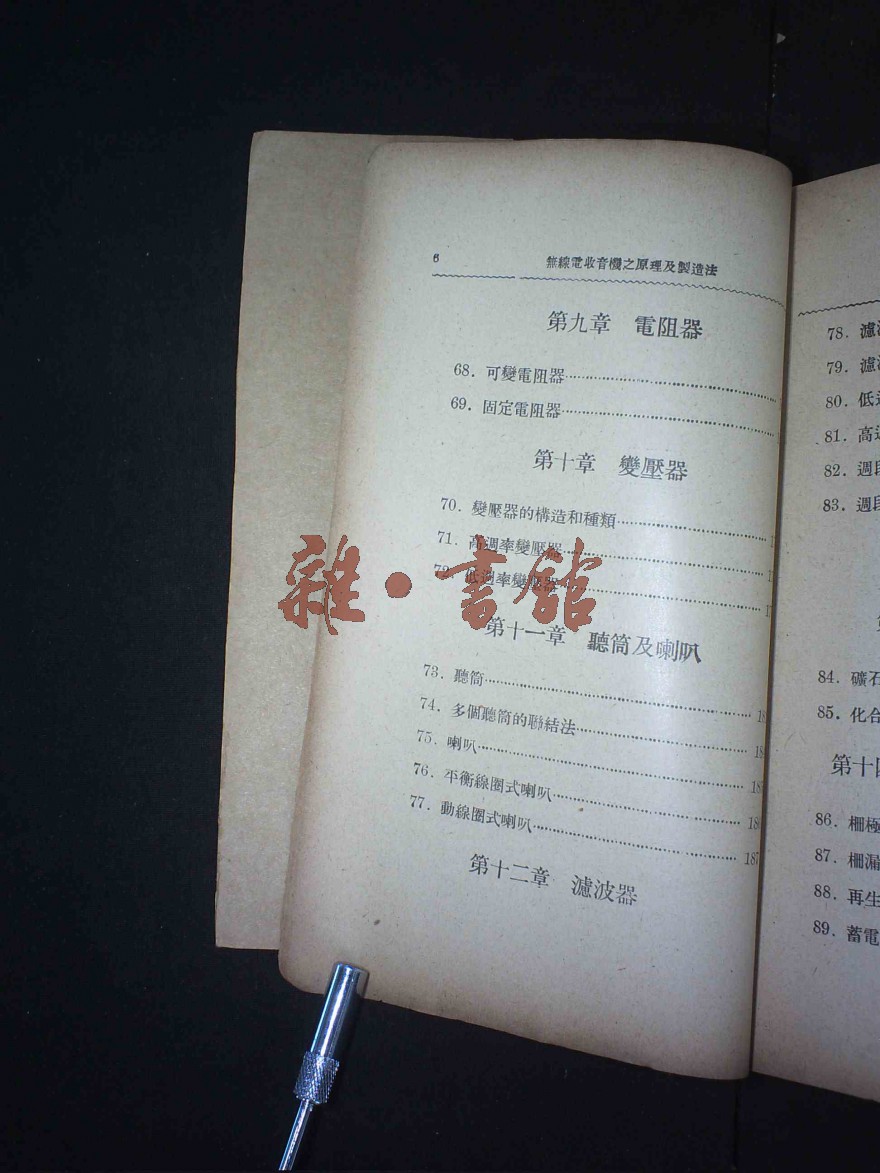 6 無線電收音機之原理及製造法
第九章 電阻器
68. 可變電阻器
69. 固定電阻器
第十章 變壓器
70. 變壓器的構造和種類
71. 高週率變壓器
72. 低週率變壓器
雜·書館
第十一章 聽筒及喇叭
73. 聽筒
74. 多個聽筒的聯結法
75. 喇叭
76. 平衡線圈式喇叭
77. 動線圈式喇叭 187
第十二章 濾波器
78. 濾
79. 濾
80. 低
81. 高
82. 週
83. 週
84. 礦石
85. 化合
第十
86. 柵極
87. 柵漏
88. 再生
89. 蓄電